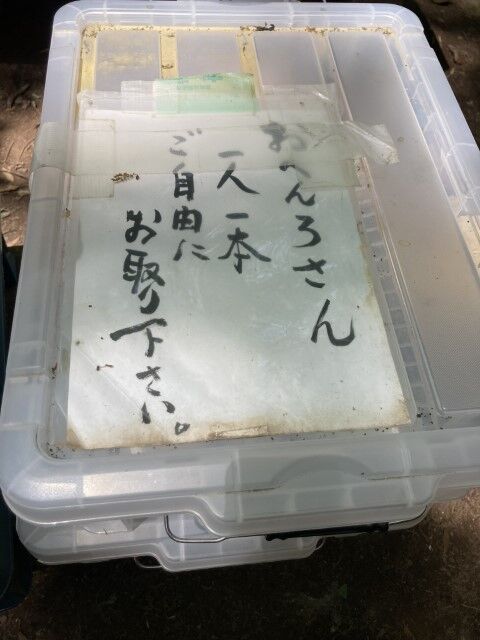 おへんろさん
一人一本
ご自由に
お取り下さい。